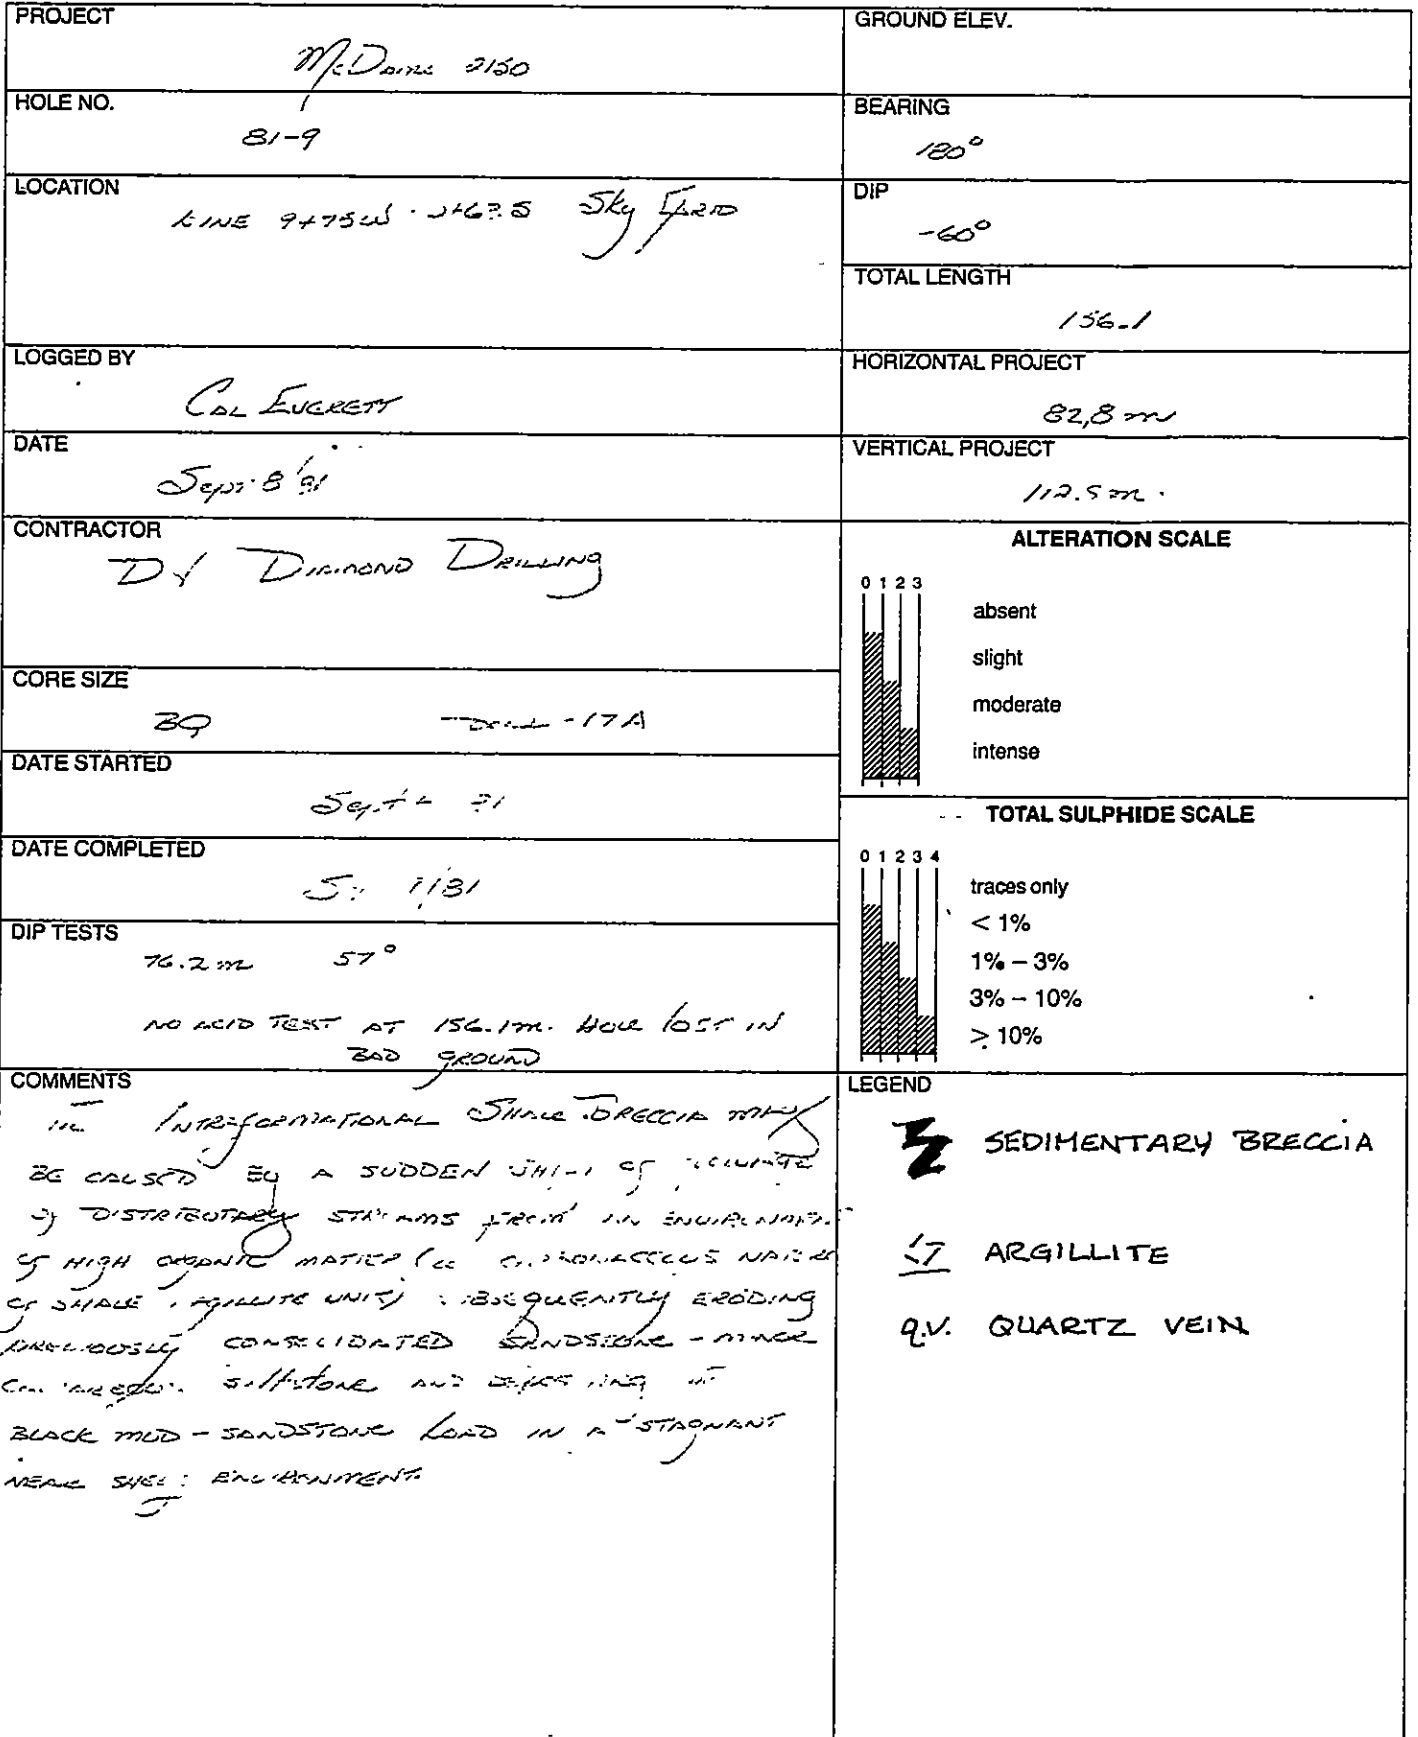 PROJECT
McDame 2150
HOLE NO.
81-9
LOCATION
LINE 9+75W Sky
LOGGED BY
CAL EVERETT
DATE
Sept. 8
CONTRACTOR
DIAMOND DRILLING
CORE SIZE
BQ -17A
DATE STARTED
DATE COMPLETED
DIP TESTS
76.2 m 57°
NO ACID TEST AT 156.1m. HOLE LOST IN
BAD GROUND
COMMENTS
INTRAFORMATIONAL SHALE BRECCIA MAY
BE CAUSED BY A SUDDEN OF
DISTRIBUTARY STREAMS FROM AN
OF HIGH ORGANIC MATTER
OF SHALE UNIT) ERODING
PREVIOUSLY CONSOLIDATED SANDSTONE - MINOR
siltstone AND
BLACK MUD - SANDSTONE LOAD IN A STAGNANT
ENVIRONMENT
GROUND ELEV.
BEARING
180°
DIP
-60°
TOTAL LENGTH
156.1
HORIZONTAL PROJECT
82,8 m
VERTICAL PROJECT
112.5 m.
ALTERATION SCALE
0 1 2 3
absent
slight
moderate
intense
TOTAL SULPHIDE SCALE
0 1 2 3 4
traces only
< 1%
1% – 3%
3% – 10%
> 10%
LEGEND
SEDIMENTARY BRECCIA
ARGILLITE
q.v. QUARTZ VEIN